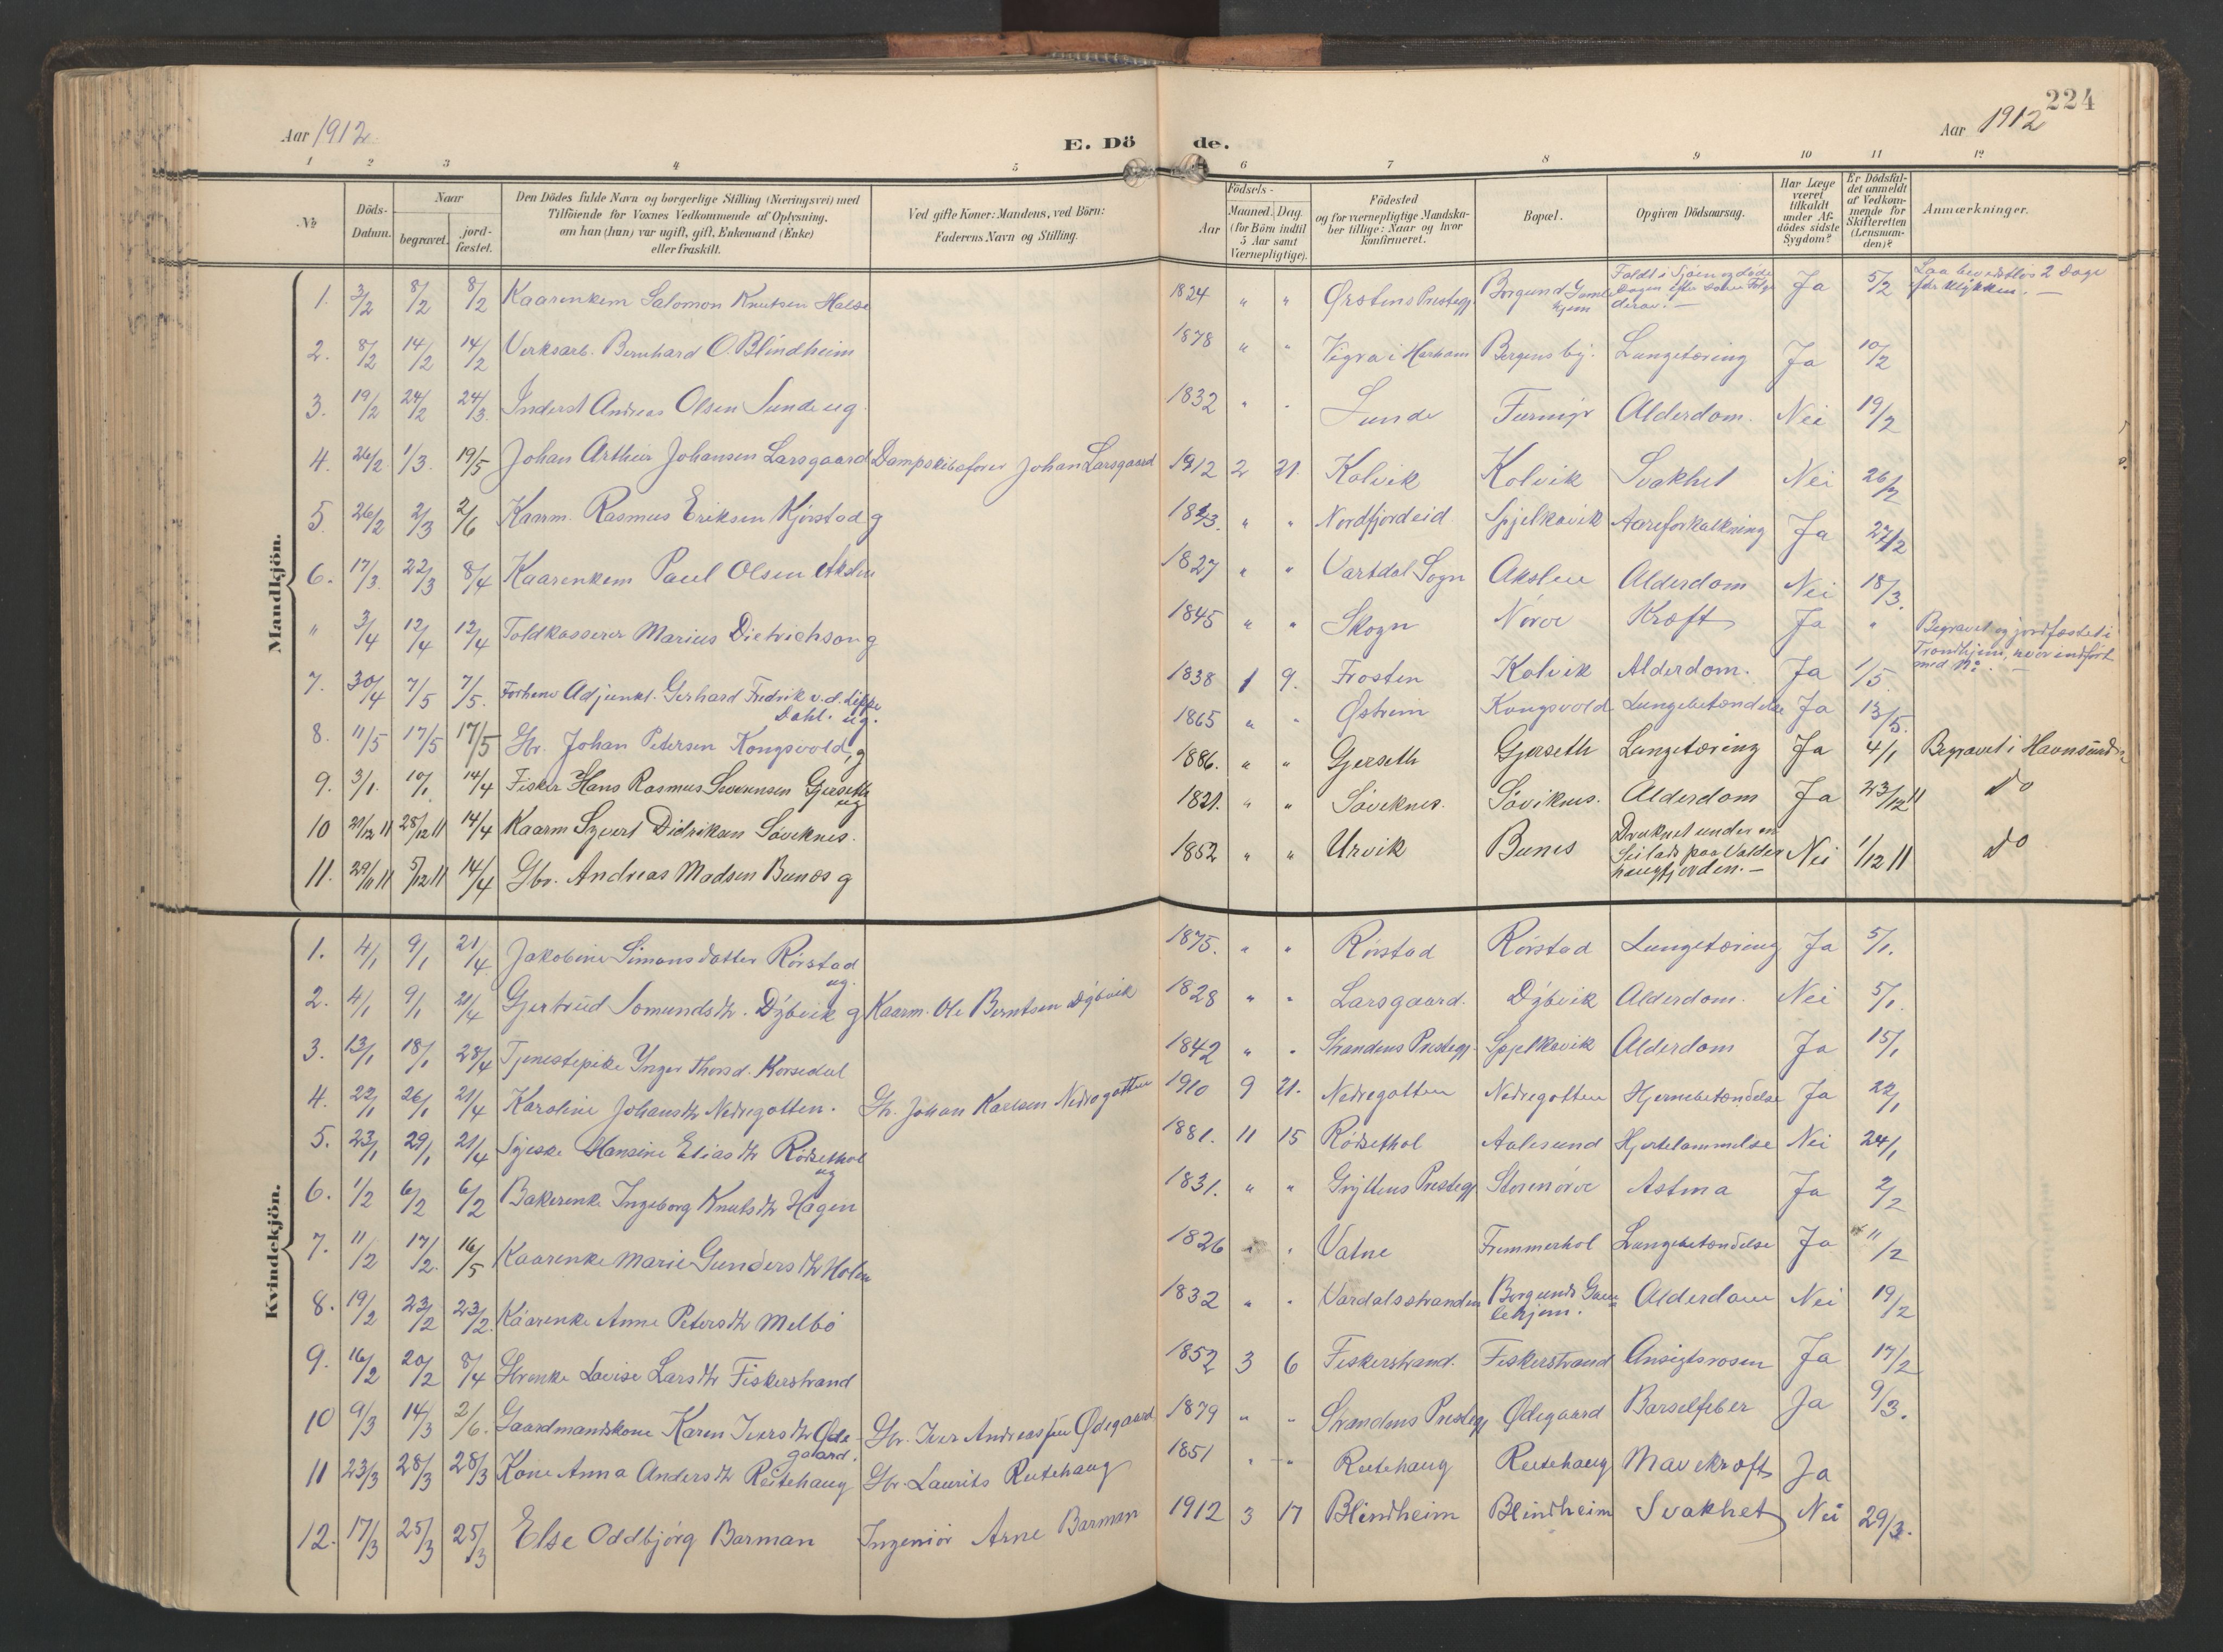 224
Aar 1912
E. Dö de.
Aar 1912
1 2 3 4 5 6 7 8 9 10 11 12
No
Döds-Datum.
Naar
begravet.
jord-fæstet.
Den Dödes fulde Navn og borgerlige Stilling (Næringsvei) med
Tilföiende for Voxnes Vedkommende af Oplysning,
om han (hun) var ugift, gift, Enkemand (Enke)
eller fraskilt.
Ved gifte Koner: Mandens, ved Börn:
Faderens Navn og Stilling.
Födsels-
Aar
Maaned. Dag.
(for Börn indtil
5 Aar samt
Værnepligtige).
Födested
og for værnepligtige Mandska-
ber tillige: Naar og hvor
konfirmeret.
Bopæl.
Opgiven Dödsaarsag.
Har Læge
været
tilkaldt
under Af-
dödes sidste
Sygdom?
Er Dödsfal-
det anmeldt
af Vedkom-
mende for
Skifteretten
(Lensman-
den)?
Anmærkninger.
Mandkjön.
1. 3/2 8/2 8/2 Kaarenkem Salomon Knutsen Halse 1824 " " Ørstens Prestegj. Borgund Gamle hjem Faldt i Sjøen og døde Dagen efter som Følge derav. — Ja 5/2 Laa bevidstløs 2 Dage efter Ulykken. —
2. 8/2 14/2 14/2 Verksarb. Bernhard O. Blindheim 1878 " " Vigra i Haram Bergens by. Lungetæring Ja 10/2
3. 19/2 24/2 24/3. Inderst Andreas Olsen Sunde ug. 1832 " " Sunde Furmyr Alderdom. Nei 19/2
4. 26/2 1/3. 19/5 Johan Arthur Johansen Larsgaard Dampskibsfører Johan Larsgaard 1912 2 21. Kolvik Kolvik Svakhet Nei 26/2
5. 26/2 2/3 2/6 Kaarm. Rasmus Eriksen Kjørstad g 1823. " " Nordfjordeid Spjelkavik Aareforkalkning Ja 27/2
6. 17/3. 22/3 8/4 Kaarenkem Paul Olsen Akslen 1827 " " Vartdal Sogn Akslen Alderdom Nei 18/3.
" 3/4 12/4 12/4 Toldkasserer Marius Dietrichson g 1845 " " Skogn Nørve Kræft Ja " Begravet og jordfæstet i Trondhjem, hvor indført med No. —
7. 30/4 7/5 7/5. Forhenv. Adjunkt. Gerhard Fredrik v. d. Lippe Dahl. ug. 1838 1 9. Frosten Kolvik Alderdom. Ja 1/5
8. 11/5 17/5 17/5 Gbr. Johan Petersen Kongsvold, g 1865 " " Østrem Kongsvold Lungebetændelse Ja 13/5.
9. 3/1. 10/1 14/4 Fisker Hans Rasmus Severinsen Gjerseth ug 1886. " " Gjerseth Gjerseth Lungetæring Ja 4/1 Begravet i Havnsund
10 21/12 11 28/12 11 14/4 Kaarm Syvert Didriksen Søveknes. 1821. " " Søveknes. Søviknes. Alderdom Ja 23/12 11 do
11. 29/11 11 5/12 11 14/4 Gbr. Andreas Madsen Bunes g 1852 " " Urvik Bunes Druknet under en Seilads paa Valderhaugfjorden. — Nei 1/12 11 do
Kvindekjön.
1. 4/1 9/1 21/4 Jakobine Simonsdatter Rørstad ug. 1875. " " Rørstad Rørstad Lungetæring Ja 5/1.
2. 4/1 9/1 21/4 Gjertrud Somundsdtr. Dybvik g Kaarm. Ole Berntsen Dybvik 1828 " " Larsgaard. Dybvik Alderdom. Nei 5/1.
3. 13/1 18/1 28/4 Tjenestepike Ynger Thorsd. Korsedal 1842 " " Strandens Prestegj. Spjelkavik Alderdom Ja 15/1
4. 22/1 26/1 21/4 Karoline Johansdtr Nedregotten. Gbr. Johan Karlsen Nedregotten 1910 9 21. Nedregotten Nedregotten Hjernebetændelse Ja 22/1
5. 23/1 29/1 21/4 Syerske Hansine Eliasdtr Rødsethol ug 1881. 11 15 Rødsethol Aalesund Hjertelammelse Nei 24/1
6. 1/2 6/2 6/2 Bakerenke Ingeborg Knutsdtr Hagen 1831. " " Gryttens Prestegj Storenørve Astma Ja 2/2
7. 11/2 17/2. 16/5 Kaarenke Marie Gundersdtr Holen 1826 " " Vatne Fremmerhol Lungebetændelse Ja 11/2
8. 19/2 23/2 23/2. Kaarenke Anne Petersdtr Melbø 1832 " " Vardalsstranden Borgunds Gamlehjem. Alderdom Nei 19/2
9. 16/2 20/2 8/4 Gbrenke Lovise Larsdtr Fiskerstrand 1852 3 6 Fiskerstrand. Fiskerstrand Ansigtsrosen Ja 17/2
10 9/3 14/3 2/6. Gaardmandskone Karen Iversdtr Ødegaard. Gbr. Iver Andreassen Ødegaard 1879 " " Strandens Prestegj Ødegaard Barselfeber Ja 9/3.
11 23/3 28/3 28/3 Kone Anna Andersdtr Reitehaug Gbr. Laurits Reitehaug 1851 " " Reitehaug Reitehaug Mavekræft Ja
12. 17/3 25/3 25/3 Else Oddbjørg Barman Ingeniør Arne Barman 1912 3 17 Blindheim Blindheim Svakhet Nei 29/3.